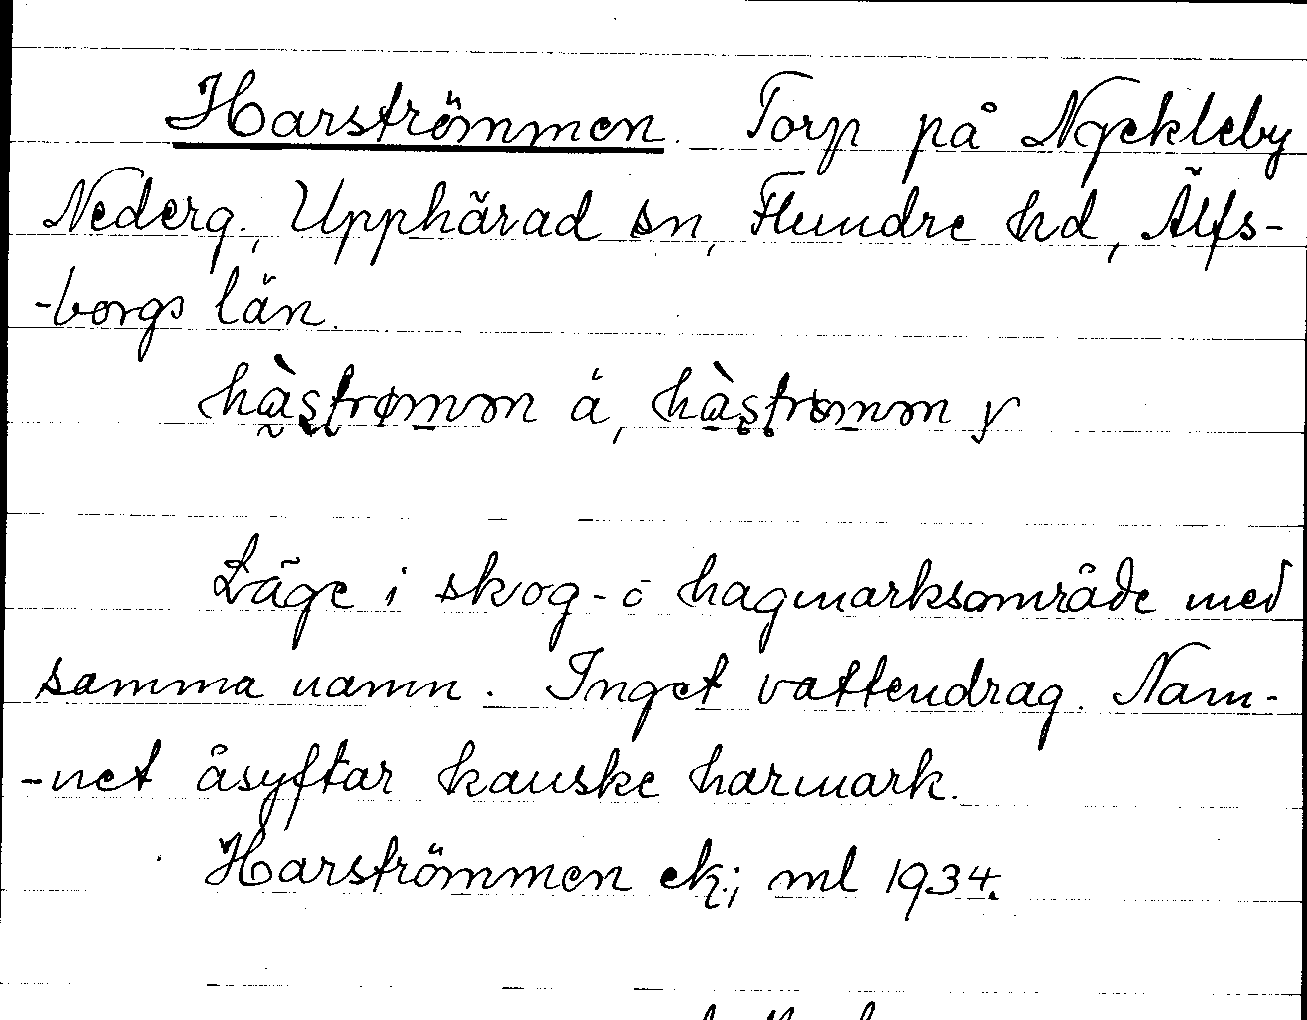 Harströmmen. Torp på Nyckleby
Nederg., Upphärad sn, Flundre hd, Älfs-
-borgs län.
hàstrømmen å, hàstrømmen y
Läge i skog- o hagmarksområde med
samma namn. Inget vattendrag. Nam-
-net åsyftar kanske harmark.
Harströmmen ek; ml 1934.